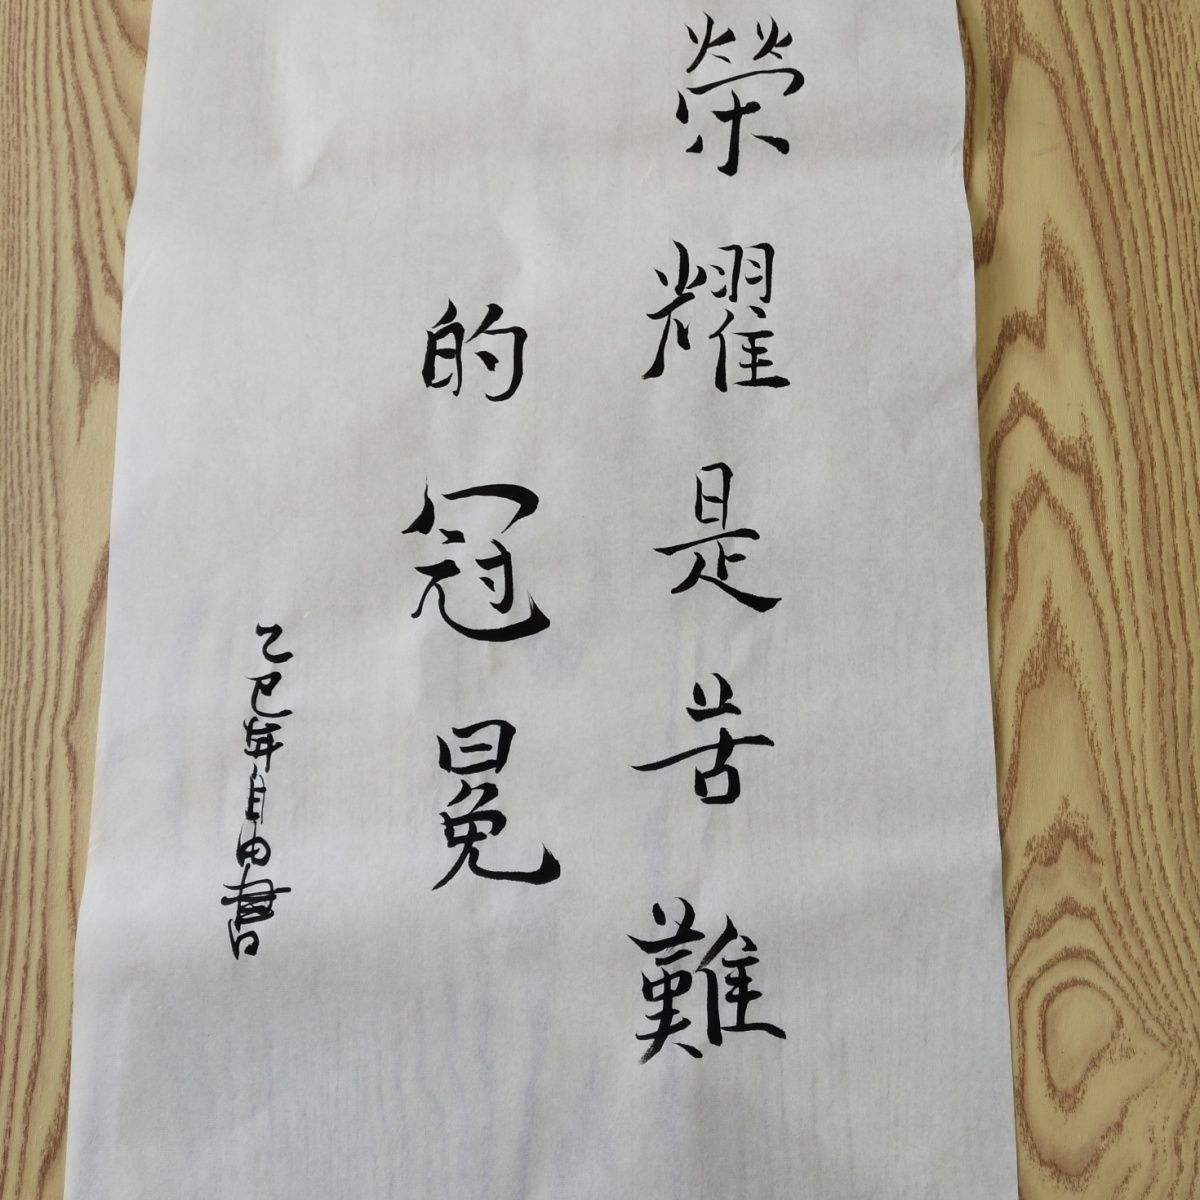 榮耀是苦難
的冠冕
乙巳年自由書